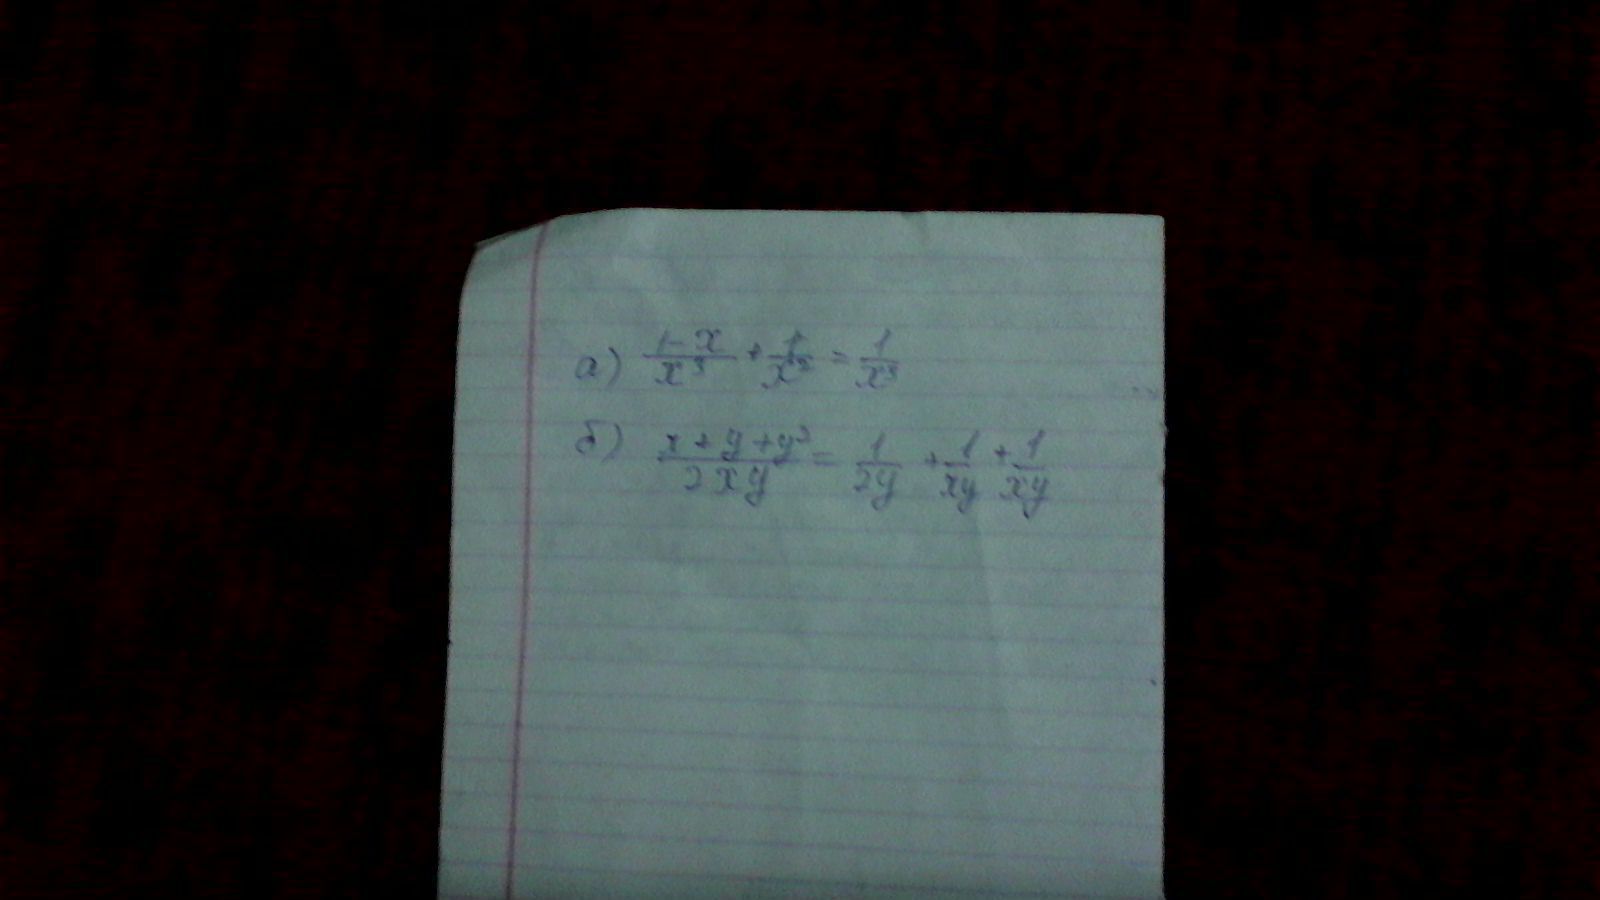 а) (1-x)/x³ + 1/x² = 1/x³
б) (x+y+y²)/(2xy) = 1/(2y) + 1/(xy) + 1/(xy)